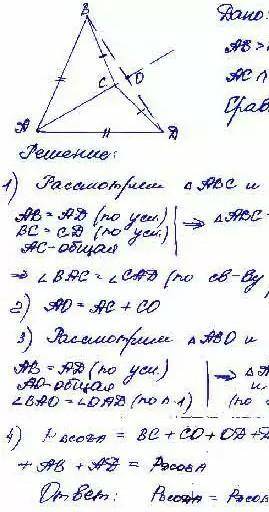 B
Дано:
AB >
C
O
AC П
A
D
Срав
Решение:
1) Рассмотрим △ABC и
AB = AD (по усл.)
BC = CD (по усл.)
AC - общая
⇒ △ABC =
⇒ ∠BAC = ∠CAD (по св-ву
2) AO = AC + CO
3) Рассмотрим △ABO и
AB = AD (по усл.)
AO - общая
∠BAO = ∠OAD (по п.1)
⇒ △A
(по
4) = BC + CO + OD +
+ AB + AD =
Ответ: